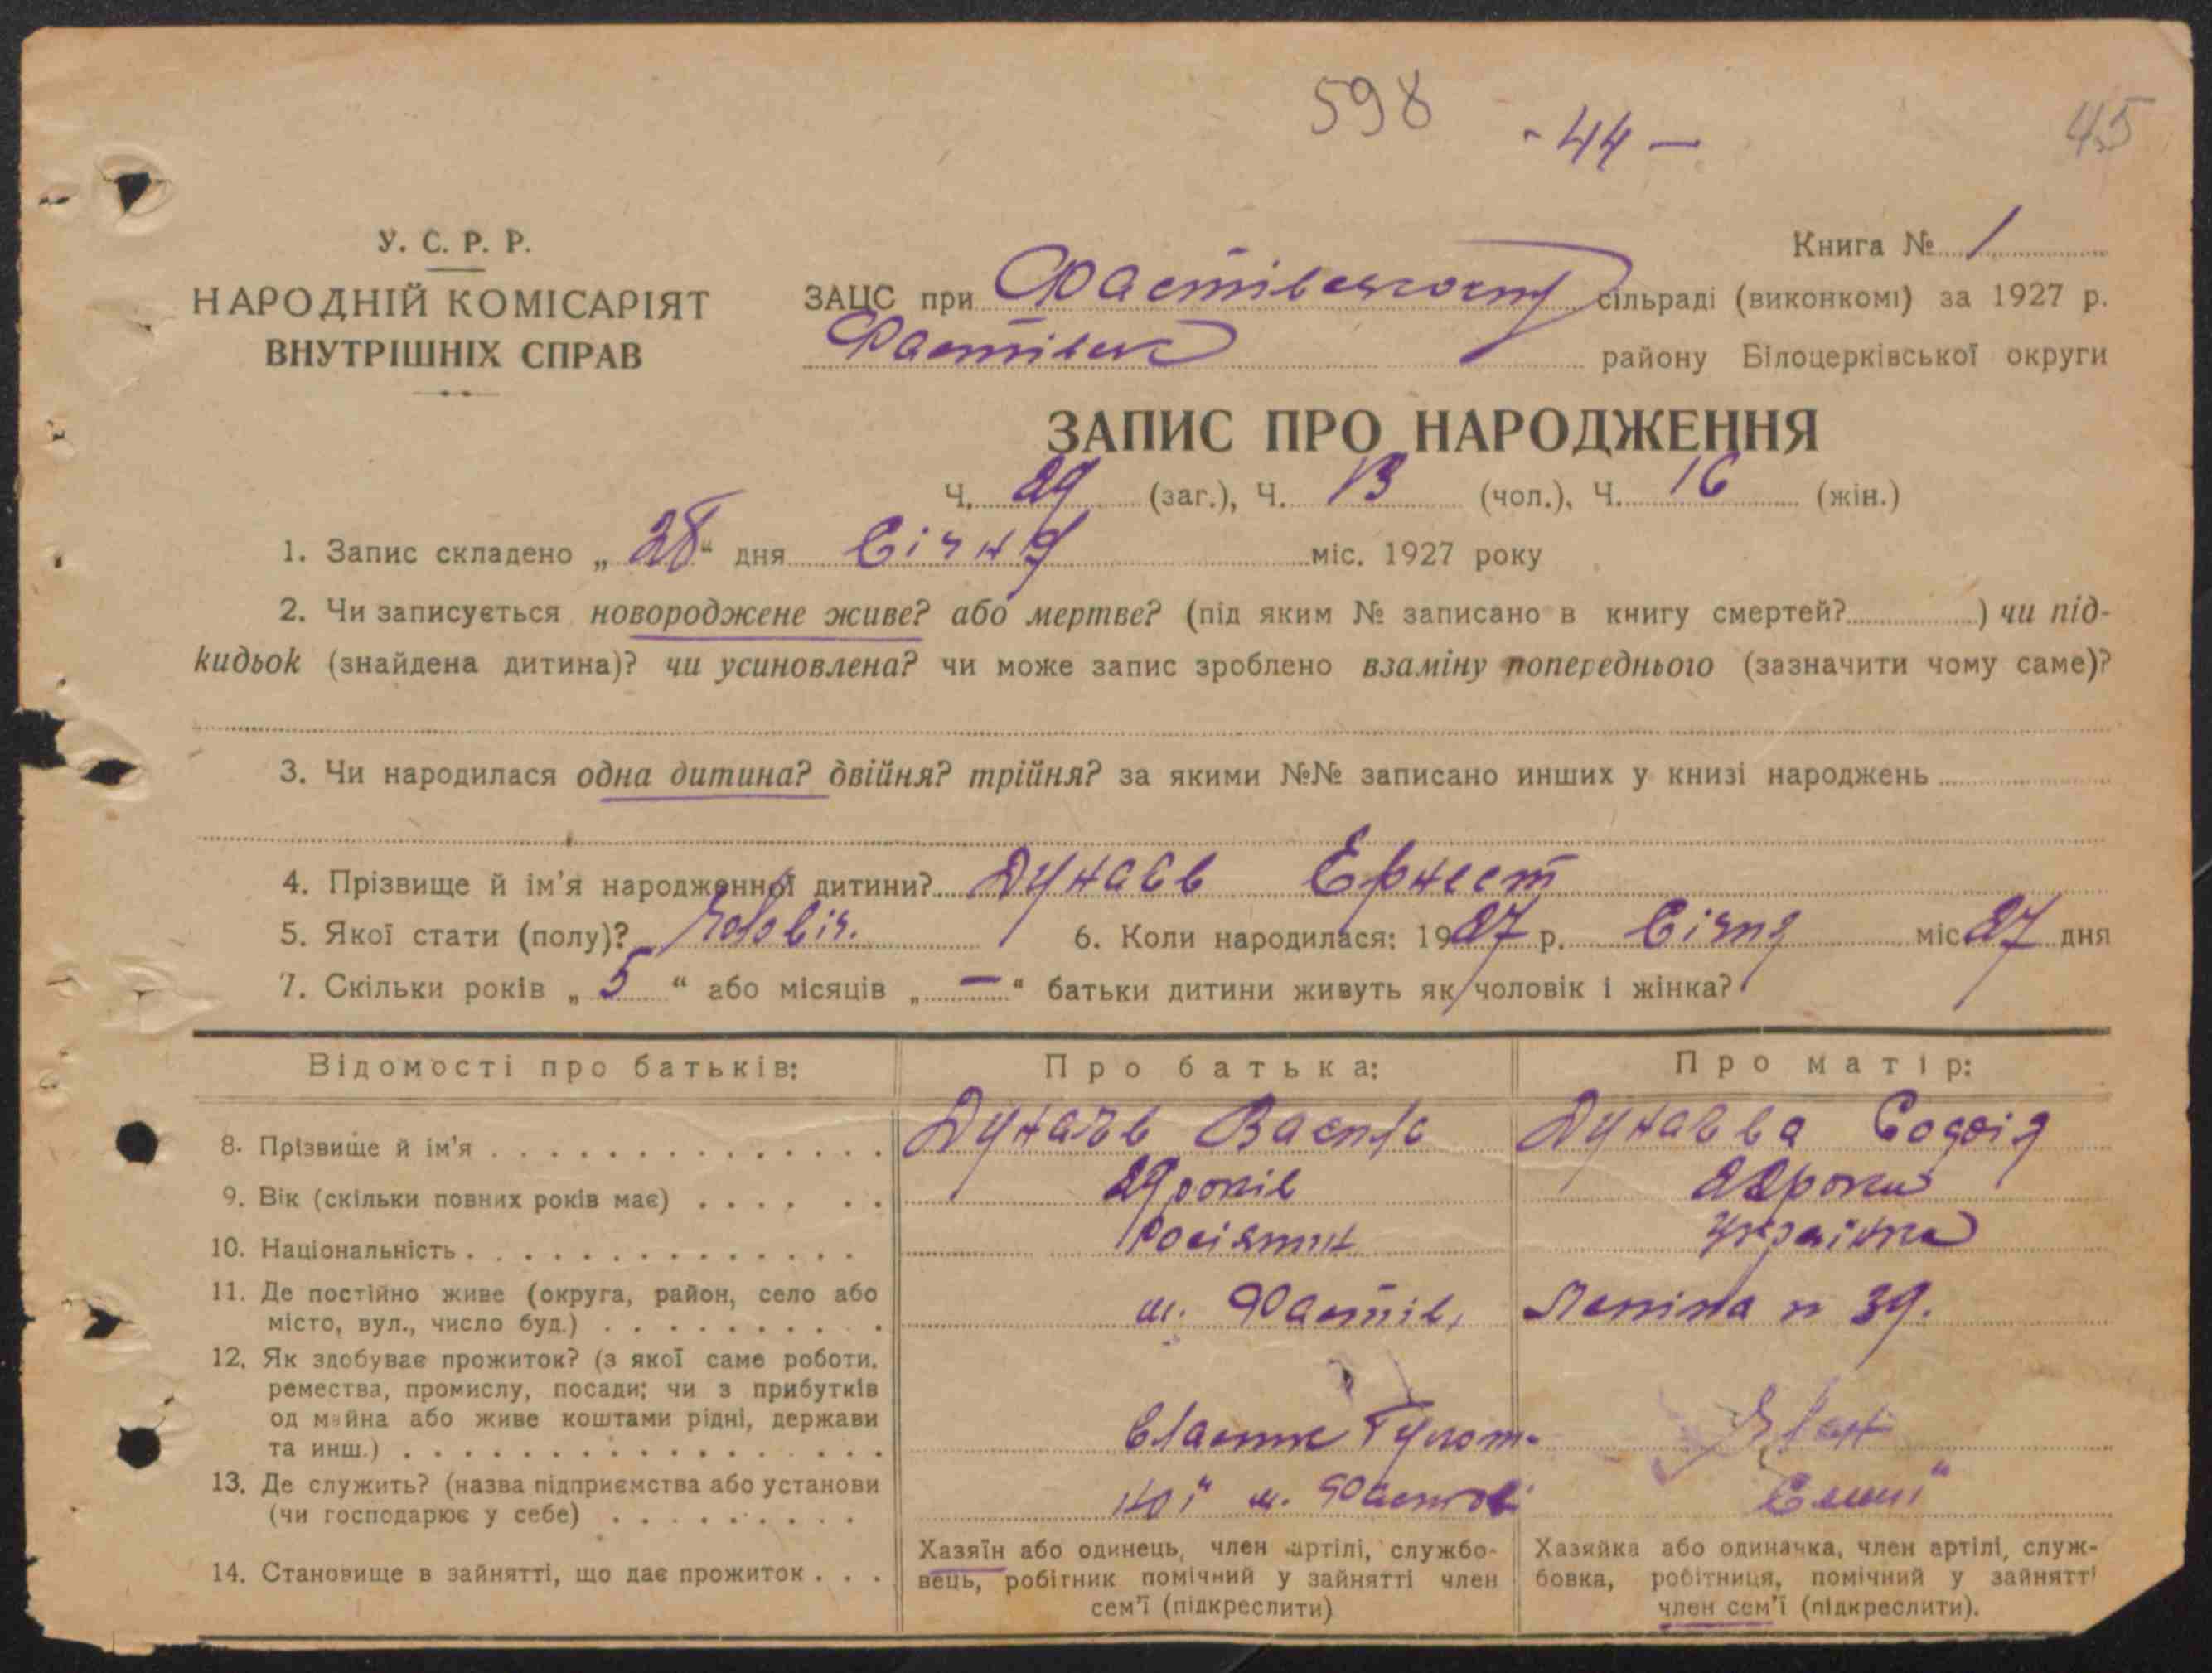 598 - 44 - 45
У. С. Р. Р.
НАРОДНІЙ КОМІСАРІЯТ
ВНУТРІШНІХ СПРАВ
Книга № 1
ЗАЦС при сільраді (виконкомі) за 1927 р.
Фастівськ району Білоцерківської округи
ЗАПИС ПРО НАРОДЖЕННЯ
Ч. 29 (заг.), Ч. 13 (чол.), Ч. 16 (жін.)
1. Запис складено „ 28 “ дня Січня міс. 1927 року
2. Чи записується новороджене живе? або мертве? (під яким № записано в книгу смертей?) чи під-
кидьок (знайдена дитина)? чи усиновлена? чи може запис зроблено взаміну попереднього (зазначити чому саме)?
3. Чи народилася одна дитина? двійня? трійня? за якими №№ записано инших у книзі народжень
4. Прізвище й ім’я народженної дитини? Дунаєв Ернест
5. Якої стати (полу)? Чоловіч. 6. Коли народилася: 1927 р. Січня міс 27 дня
7. Скільки років „ 5 “ або місяців „ — “ батьки дитини живуть як чоловік і жінка?
Відомості про батьків: Про батька: Про матір:
8. Прізвище й ім’я Дунаєв Василь Дунаєва Софія
9. Вік (скільки повних років має) 29 років 22 роки
10. Національність Росіянин Українка
11. Де постійно живе (округа, район, село або
місто, вул., число буд.) м. Фастів, Леніна № 39.
12. Як здобуває прожиток? (з якої саме роботи,
ремества, промислу, посади; чи з прибутків
од майна або живе коштами рідні, держави
та инш.) Власник
13. Де служить? (назва підприємства або установи
(чи господарює у себе) м. Фастові Семії
14. Становище в зайнятті, що дає прожиток . . .
Хазяїн або одинець, член артілі, службо-
вець, робітник помічний у зайнятті член
сем’ї (підкреслити)
Хазяйка або одиначка, член артілі, служ-
бовка, робітниця, помічний у зайнятті
член сем’ї (підкреслити).